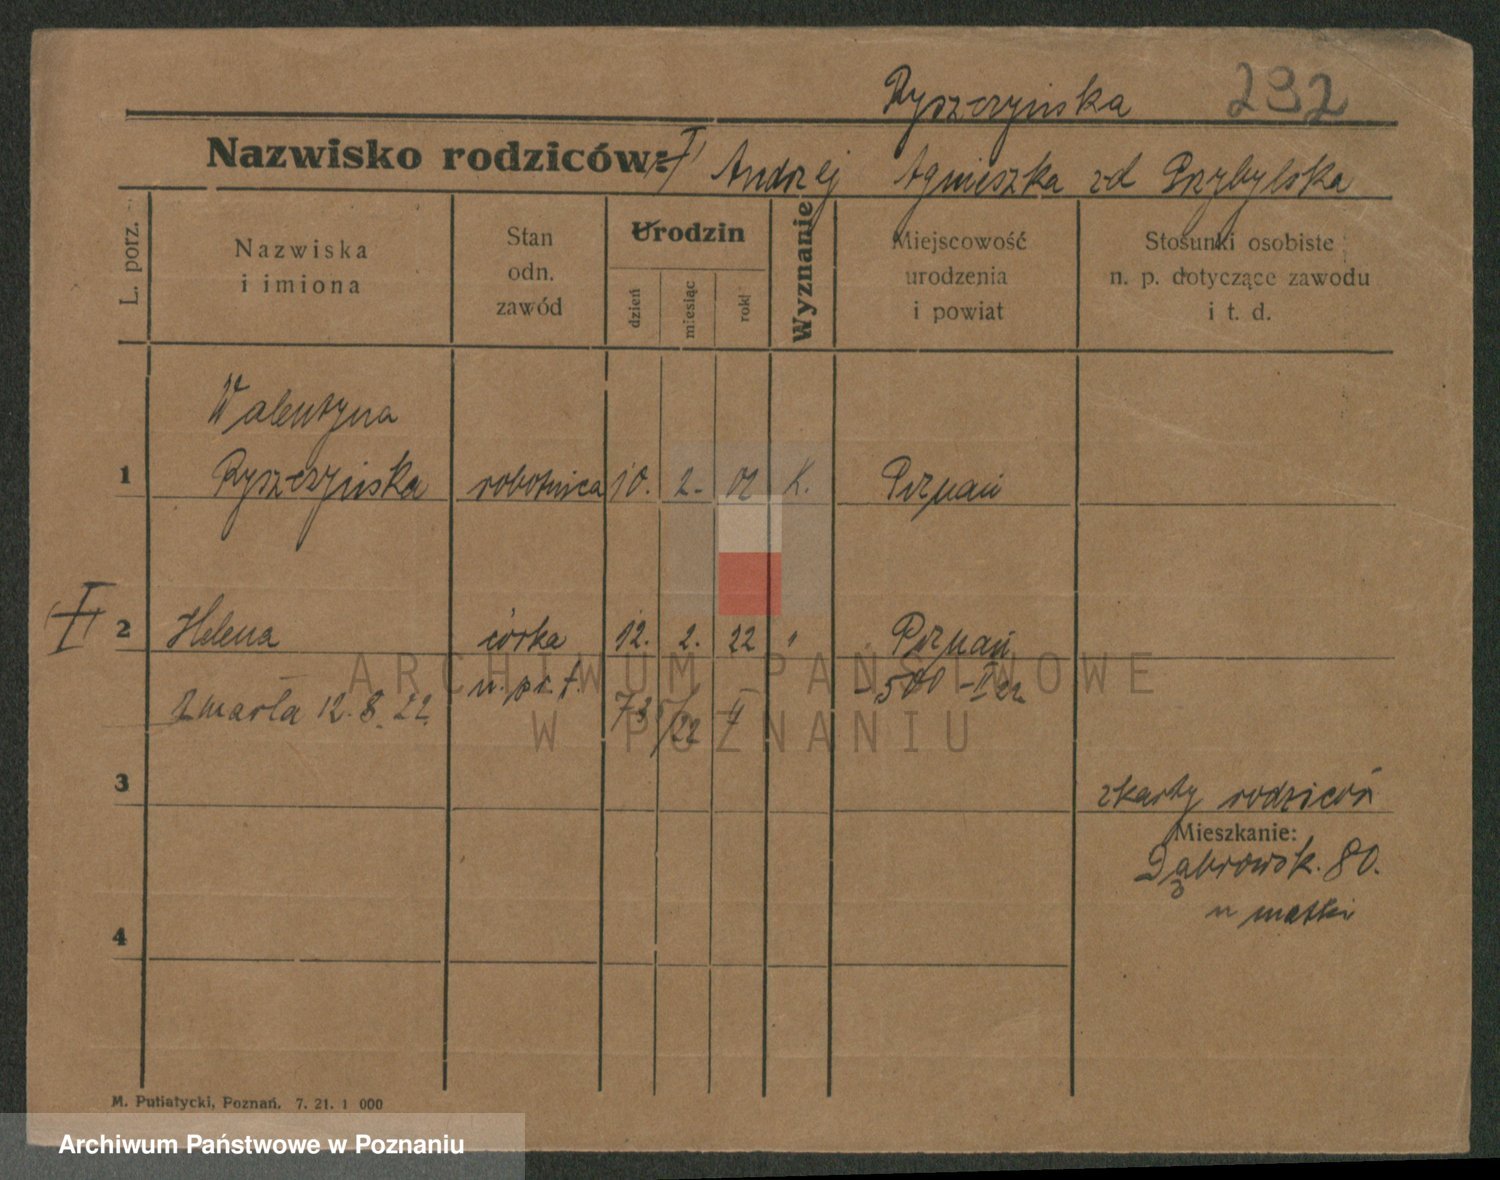 Ryszczyńska 292
Nazwisko rodziców: I) Andrzej Agnieszka zd Przybylska
L. porz.
Nazwiska
i imiona
Stan
odn.
zawód
Urodzin
dzień
miesiąc
rok
Wyznanie
Miejscowość
urodzenia
i powiat
Stosunki osobiste
n. p. dotyczące zawodu
i t. d.
Walentyna
1 Ryszczyńska robotnica 10. 2. 01 K. Poznań
2 Helena córka 12. 2. 22 " Poznań
n. pr. f. 500 – II 22
zmarła 12. 8. 22
3
z karty rodziców
Mieszkanie:
Dąbrowsk. 80.
u matki
4
ARCHIWUM PAŃSTWOWE
W POZNANIU
M. Putiatycki, Poznań. 7. 21. 1 000
Archiwum Państwowe w Poznaniu